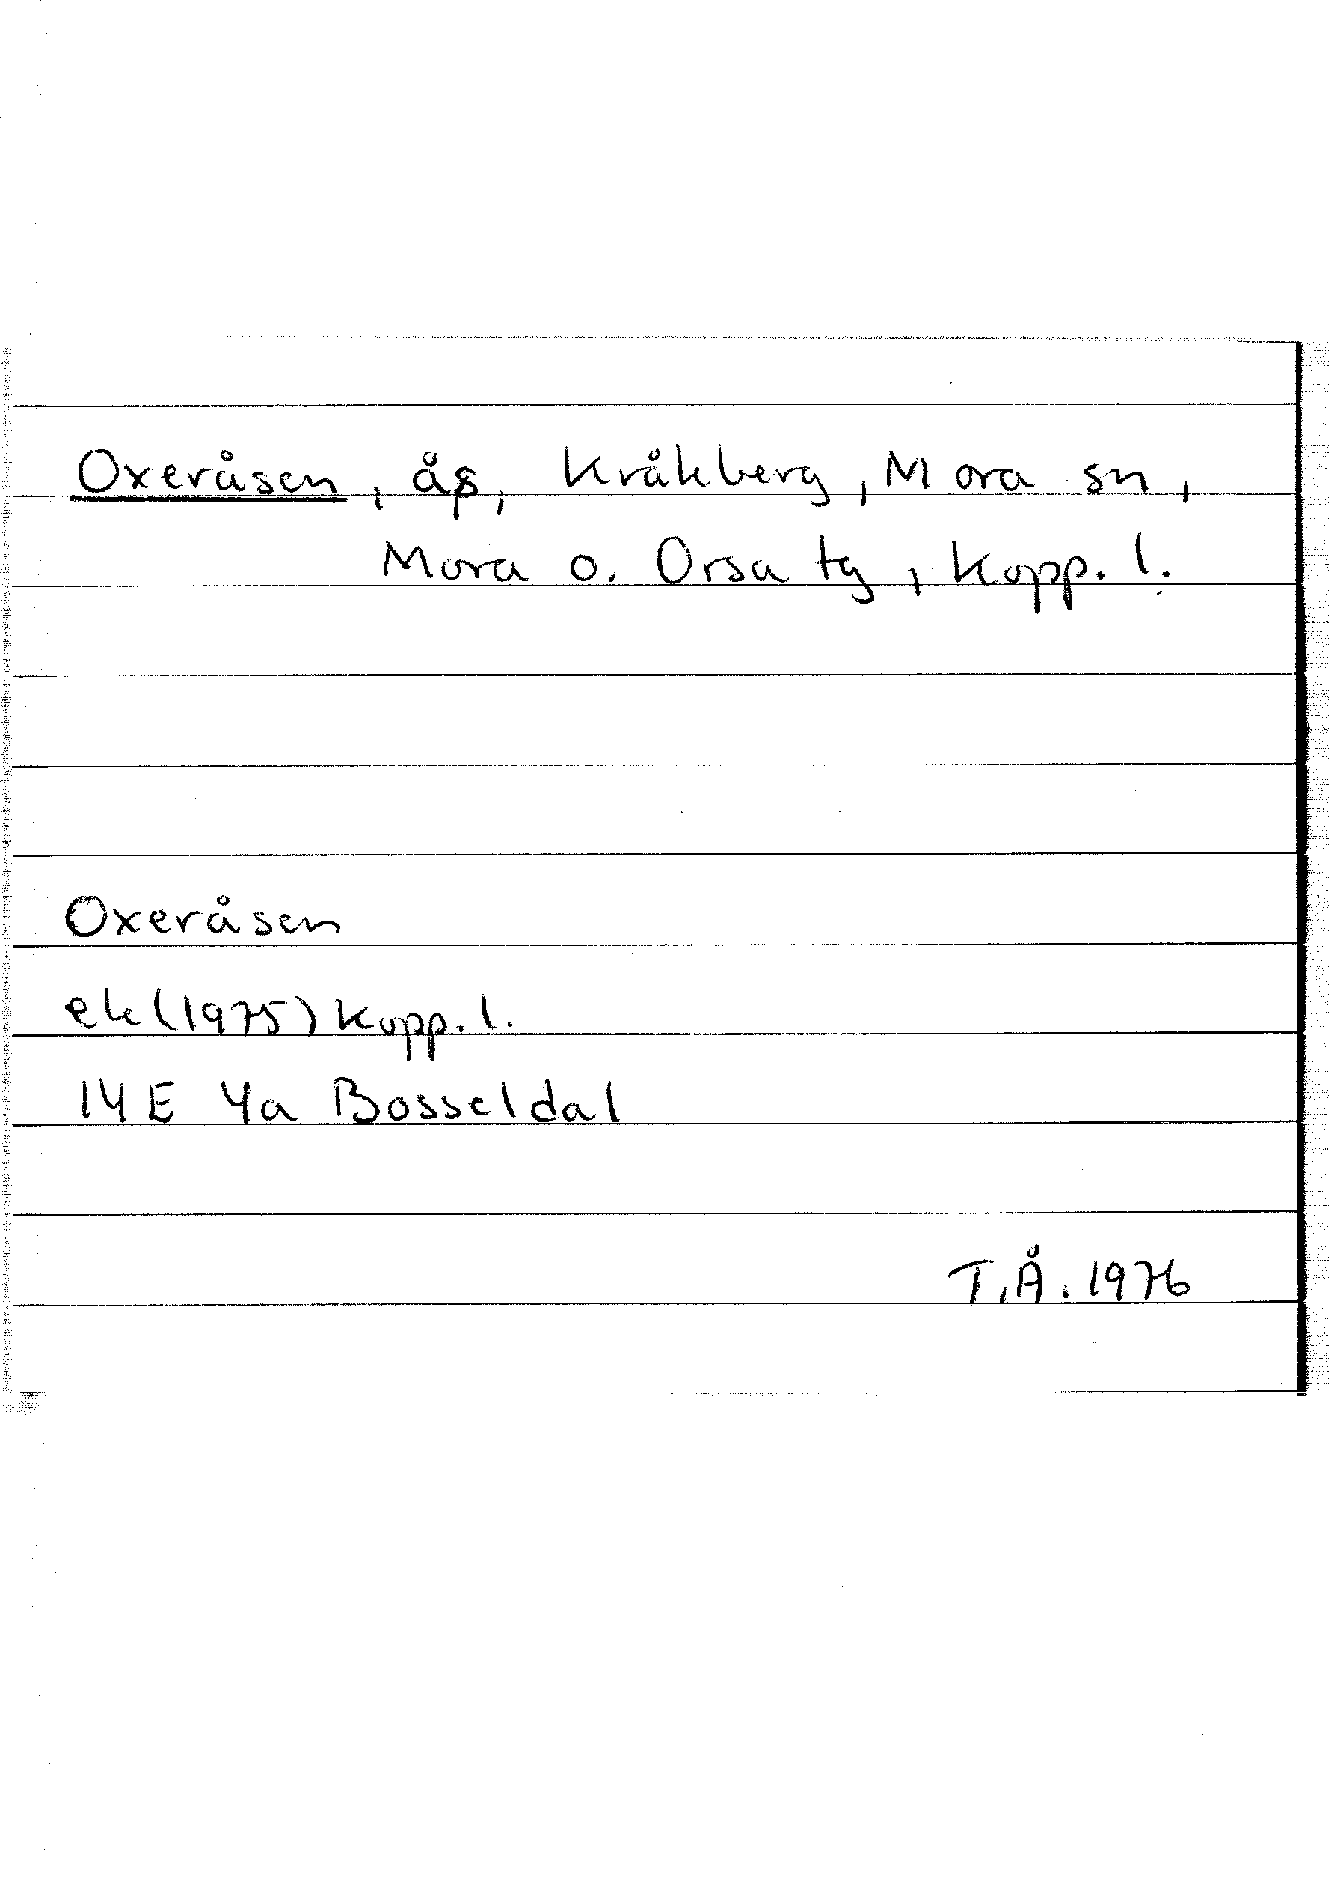 Oxeråsen, ås, Kråkberg, Mora sn,
Mora o. Orsa tg, Kopp. l.
Oxeråsen
ek (1975) Kopp. l.
14E 4a Bosseldal
T.Å. 1976